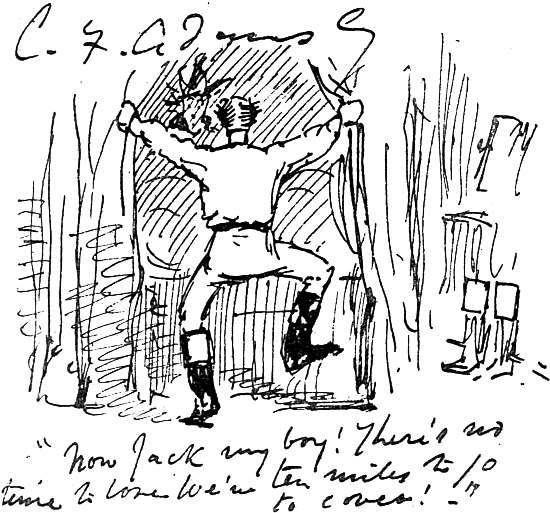 C. F. Adams
"Now Jack my boy! There's no
time to lose. We've ten miles to go
to cover!"